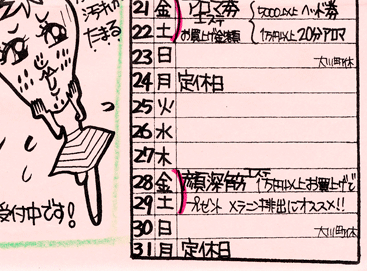 汚れが
たまる
21 金 アロマ券 5000以上 ヘッド券
エステ
22 土 お買上げ金額 1万円以上 20分アロマ
23 日 大川町休
24 月 定休日
25 火
26 水
27 木
28 金 顔深筋エステ 1万円以上お買上げで
29 土 プレゼント メラニン排出にオススメ!!
30 日 大川町休
31 月 定休日
受付中です!